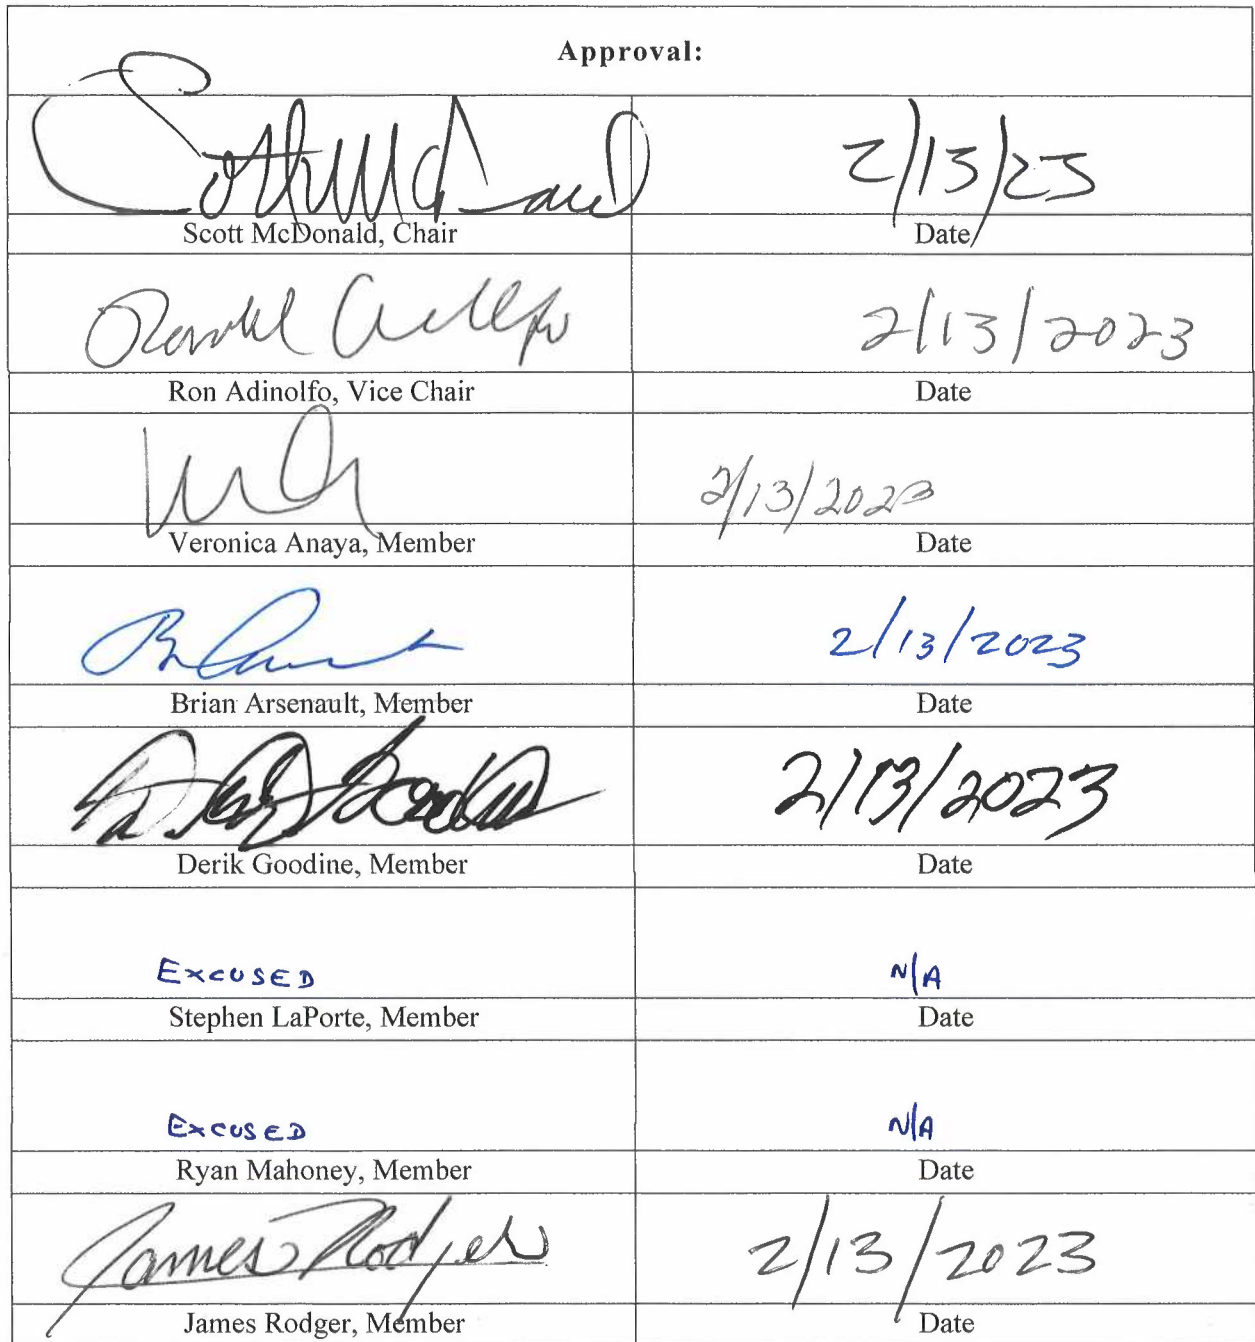 Approval:
Scott McDonald 2/13/23
Scott McDonald, Chair Date
2/13/2023
Ron Adinolfo, Vice Chair Date
2/13/2023
Veronica Anaya, Member Date
2/13/2023
Brian Arsenault, Member Date
2/13/2023
Derik Goodine, Member Date
EXCUSED N/A
Stephen LaPorte, Member Date
EXCUSED N/A
Ryan Mahoney, Member Date
James Rodger 2/13/2023
James Rodger, Member Date